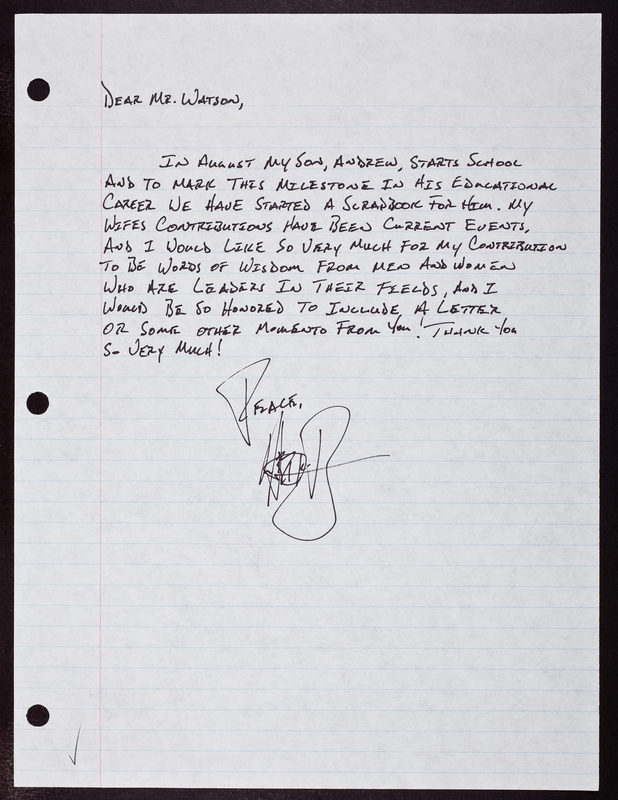 DEAR MR. WATSON,
IN AUGUST MY SON, ANDREW, STARTS SCHOOL
AND TO MARK THIS MILESTONE IN HIS EDUCATIONAL
CAREER WE HAVE STARTED A SCRAPBOOK FOR HIM. MY
WIFES CONTRIBUTIONS HAVE BEEN CURRENT EVENTS,
AND I WOULD LIKE SO VERY MUCH FOR MY CONTRIBUTION
TO BE WORDS OF WISDOM FROM MEN AND WOMEN
WHO ARE LEADERS IN THEIR FIELDS, AND I
WOULD BE SO HONORED TO INCLUDE A LETTER
OR SOME OTHER MOMENTO FROM YOU! THANK YOU
SO VERY MUCH!
PEACE,